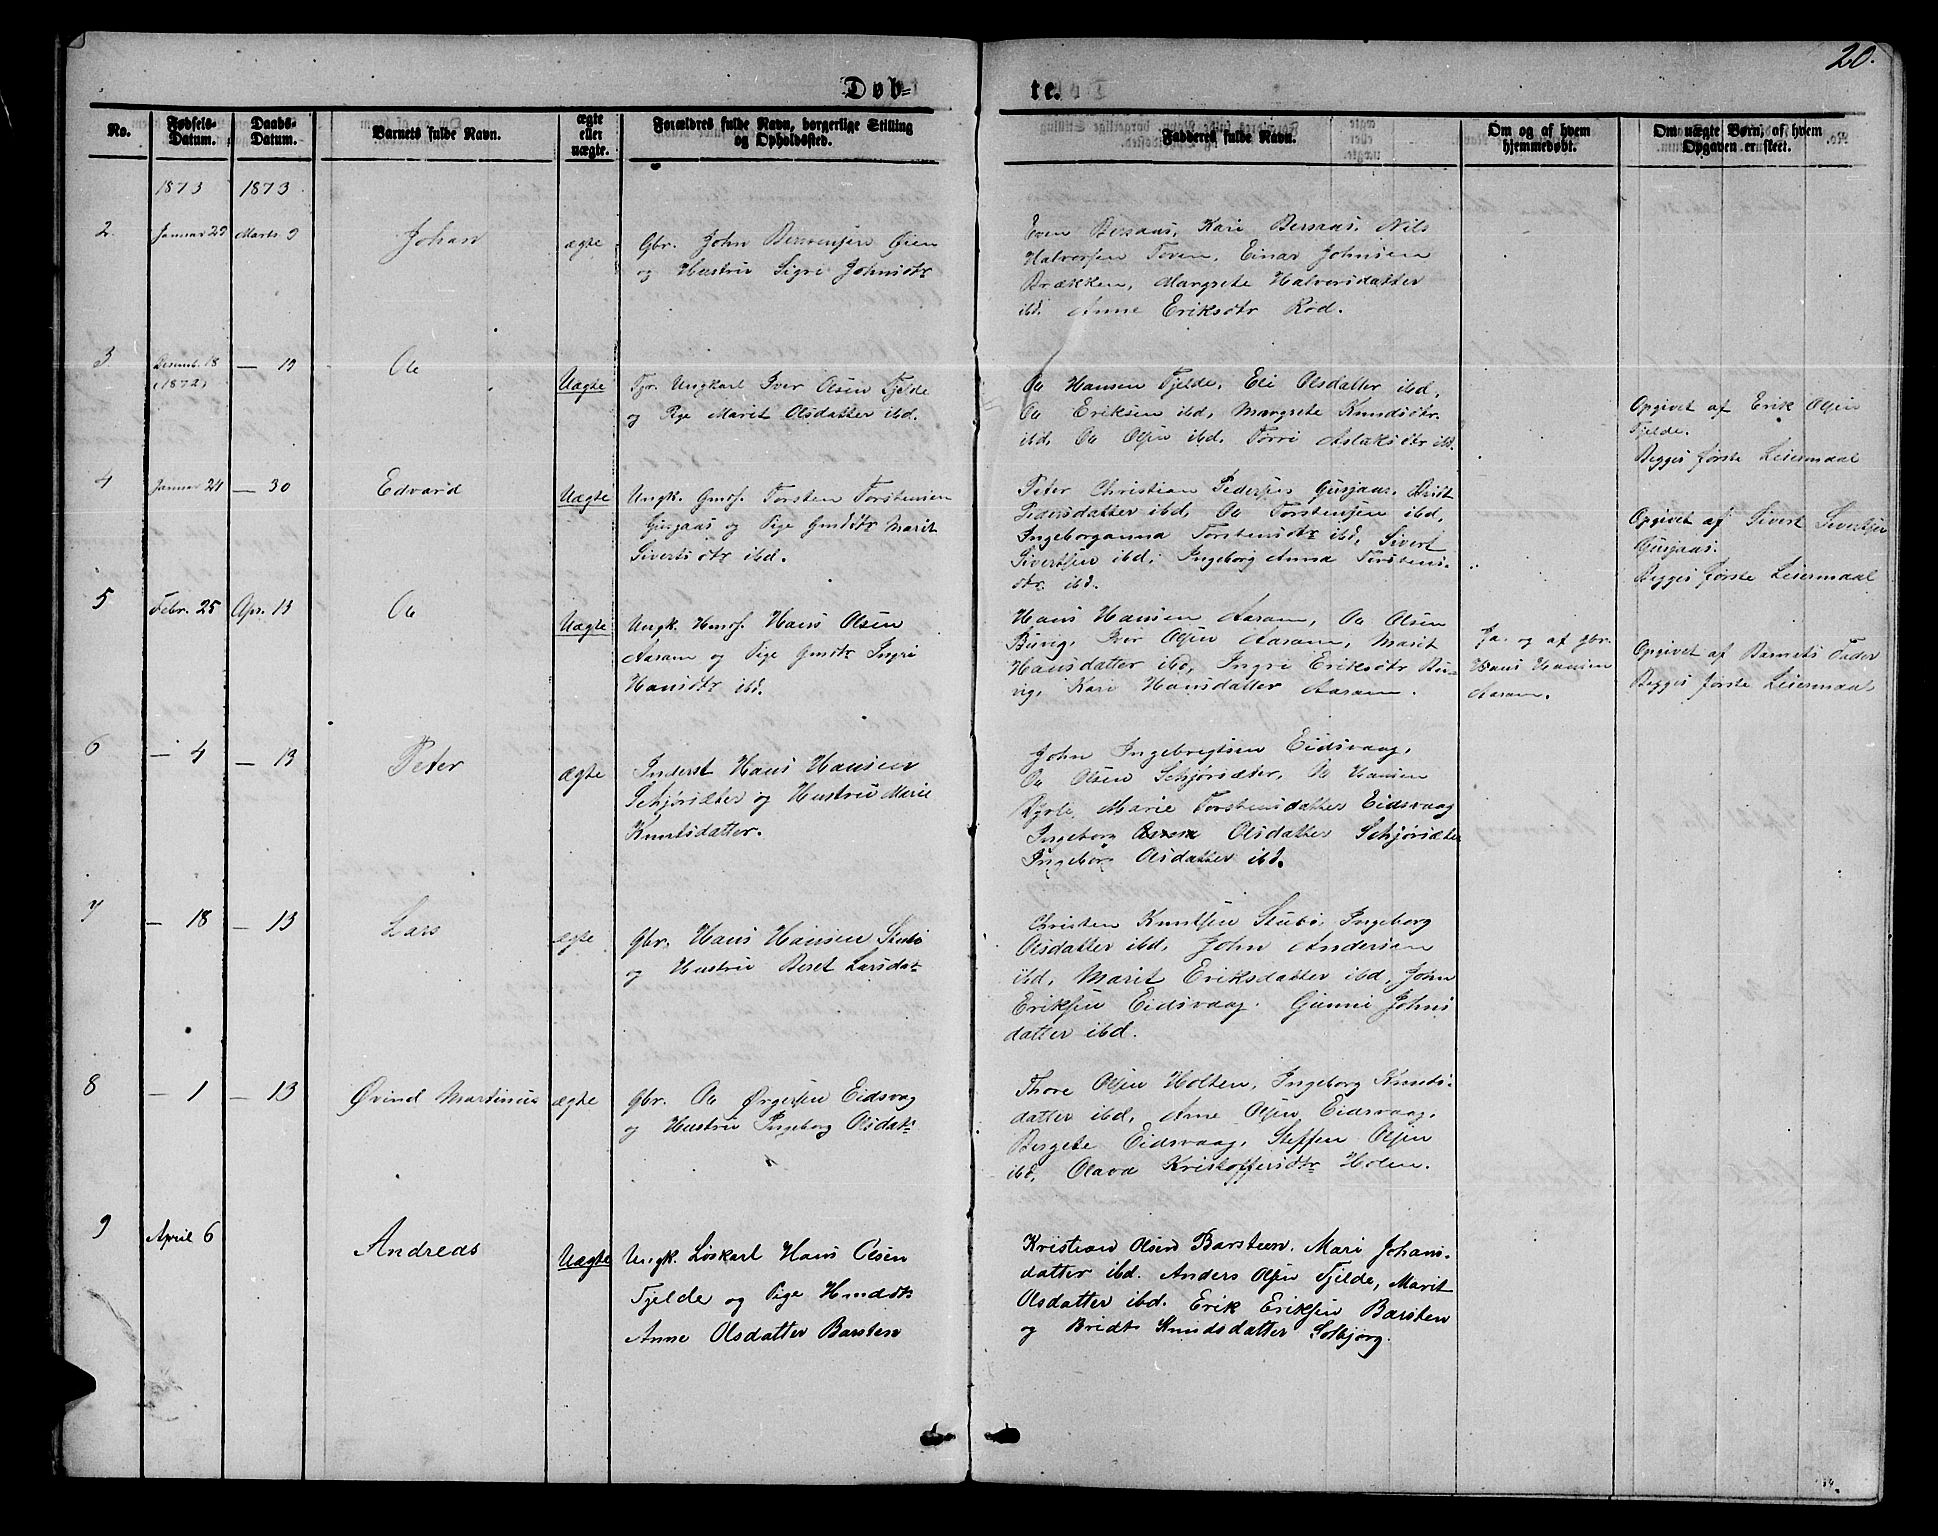 20.
Døb=
te.
No.
Fødsels-Datum.
Daabs-Datum.
Barnets fulde Navn.
ægte eller uægte.
Forældres fulde Navn, borgerlige Stilling og Opholdssted.
Fadderes fulde Navn.
Om og af hvem hjemmedøbt.
Om uægte Børn, af hvem Opgaven er skeet.
1873 1873
2. Januar 29 Marts 9 Johan ægte
Gbr. John Øien
og Hustru Sigri Johnsdtr
Even Bersaas, Kari Bersaas, Nils
Halvorsen Toven, Einar Johnsen
Brækken, Margrete Halvorsdatter
ibd. Anne Eriksdtr Rød.
3 Decemb. 18 (1872) — 19 Ole Uægte
Fjr. Ungkarl Iver Olsen Fjelde
og Pige Marit Olsdatter ibd.
Ole Hansen Fjelde, Eli Olsdatter ibd,
Ole Eriksen ibd, Margrete Knudsdtr.
ibd, Ole Olsen ibd, Torri Aslaksdtr ibd.
Opgivet af Erik Olsen
Fjelde.
Begges første Leiermaal
4 Januar 21 — 30 Edvard Uægte
Ungk. Gmds. Torsten Torstensen
Gusjaas og Pige Gmddtr Marit
Sivertsdtr ibd.
Peter Christian Pedersen Gusjaas,
Pedersdatter ibd, Ole Torstensen ibd,
Ingeborganna Torstensdtr ibd, Sivert
Sivertsen ibd, Ingeborg Anna Torstens-
dtr ibd.
Opgivet af Sivert Sivertsen
Gusjaas.
Begges første Leiermaal
5 Febr. 25 Apr. 13 Ole Uægte
Ungk. Hmds. Hans Olsen
Aaram og Pige Gmdtr Ingri
Hansdtr ibd.
Hans Hansen Aaram, Ole Olsen
Buvig, Iver Olsen Aaram, Marit
Hansdatter ibd, Ingri Eriksdtr Bu-
vig, Kari Hansdatter Aaram.
Ja. og af gbr.
Hans Hansen
Aaram.
Opgivet af Barnets Fader
Begges første Leiermaal
6 — 4 — 13 Peter ægte
Inderst Hans Hansen
Schjørsæter og Hustru Marie
Knutsdatter.
John Ingebregtsen Eidsvaag,
Ole Olsen Schjørsæter, Ole Hansen
Ryrte, Marie Torstensdatter Eidsvaag
Ingeborg Anna Olsdatter Schjørsæter
Ingeborg Olsdatter ibd.
7 — 18 — 13 Lars ægte
Gbr. Hans Hansen Stubø
og Hustru Beret Larsdatr
Christen Knutsen Stubø, Ingeborg
Olsdatter ibd, John Andersen
ibd, Marit Eriksdatter ibd, John
Eriksen Eidsvaag. Gunni Johns
datter ibd.
8 — 1 — 13 Øvind Martinus ægte
Gbr. Ole Ørgersen Eidsvag
og Hustru Ingeborg Olsdatr
Thore Olsen Holten, Ingeborg Knuts-
datter ibd, Arne Olsen Eidsvaag,
Bergete Eidsvaag, Steffen Olsen
ibd, Olava Kristoffersdtr Holen.
9 April 6 Andreas Uægte
Ungk. Løskarl Hans Olsen
Fjelde og Pige Hmddtr
Anne Olsdatter Barsten
Kristian Olsen Barsteen, Mari Johans-
datter ibd. Anders Olsen Fjelde, Marit
Olsdatter ibd. Erik Eriksen Barsten
og Bridt Knudsdatter Solbjørg.